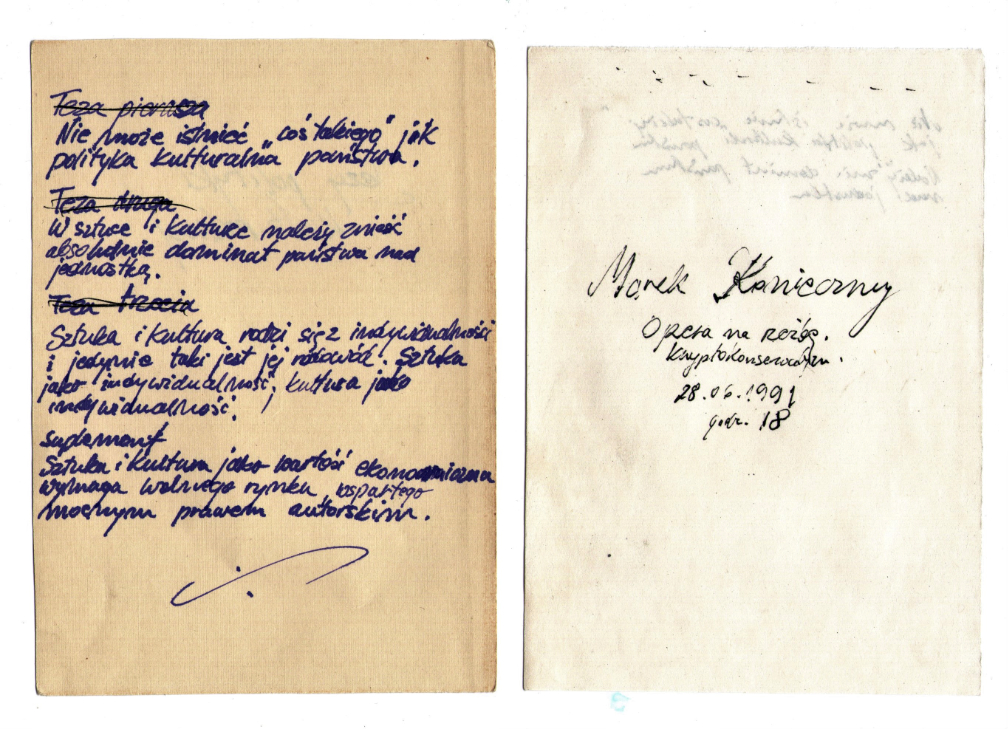 Teza pierwsza
Nie może istnieć „coś takiego” jak
polityka kulturalna państwa.
Teza druga
W sztuce i kulturze należy znieść
absolutnie dominat państwa nad
jednostką.
Teza trzecia
Sztuka i kultura rodzi się z indywidualności
i jedynie taki jest jej rodowód. Sztuka
jako indywidualność, kultura jako
indywidualność.
suplement
Sztuka i kultura jako wartość ekonomiczna
wymaga wolnego rynku wspartego
mocnym prawem autorskim.
Marek Konieczny
Opera na różę.
Kryptokonserwatyzm.
28.06.1991
godz. 18